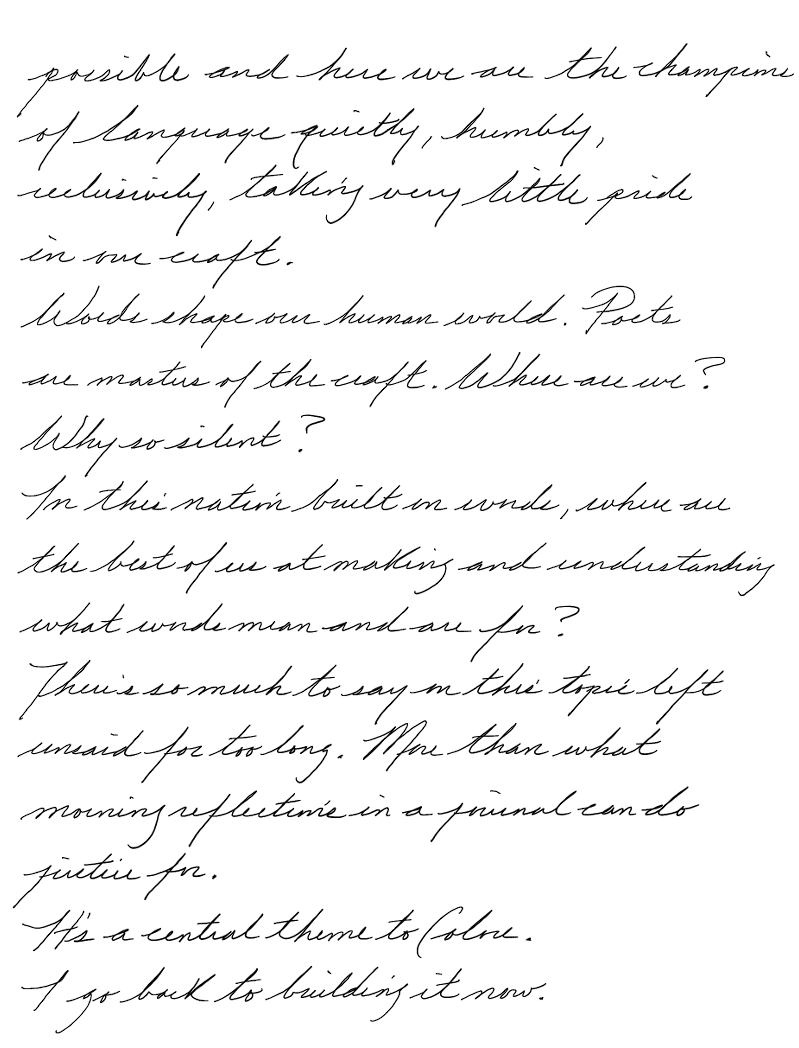 possible and here we are the champions
of language quietly, humbly,
reclusively, taking very little pride
in our craft.
Words shape our human world. Poets
are masters of the craft. Where are we?
Why so silent?
In this nation built on words, where are
the best of us at making and understanding
what words mean and are for?
There's so much to say on this topic left
unsaid for too long. More than what
morning reflections in a journal can do
justice for.
It's a central theme to Colore.
I go back to building it now.